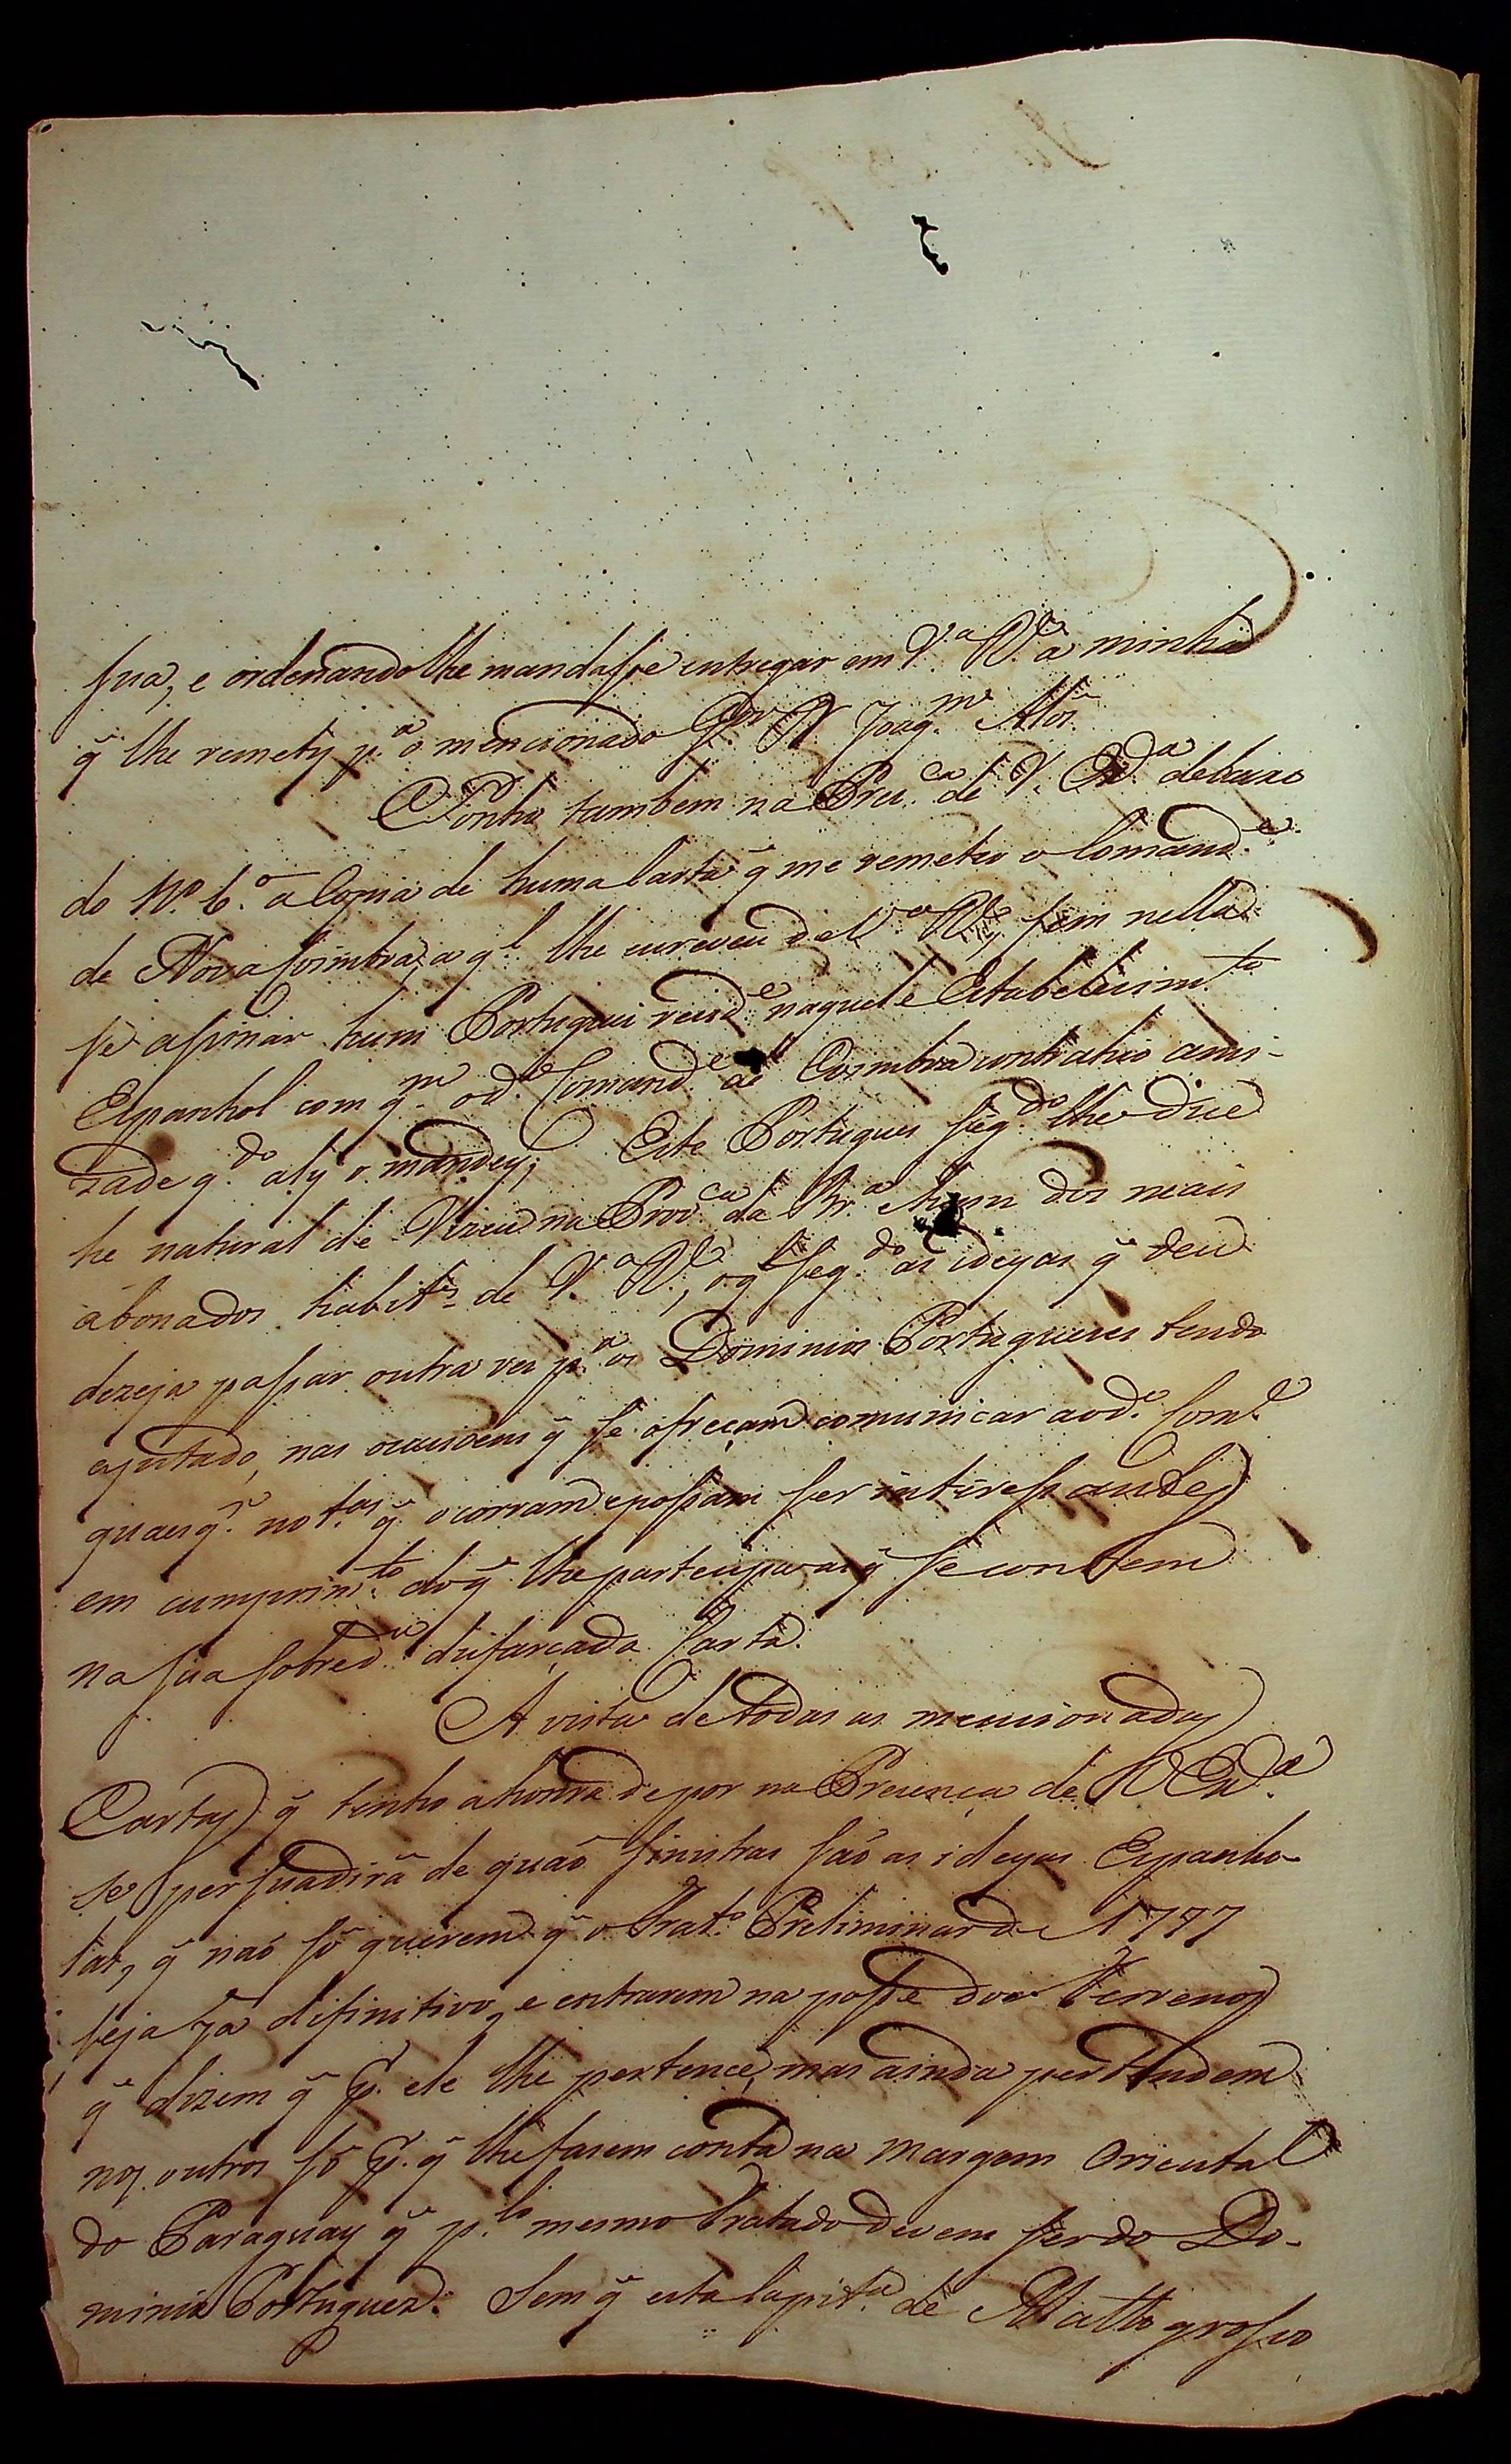 sua, e ordenandolhe mandasse entregar em V.ª R.l a minha
q̃ lhe remety p.ª o mencionado Gov.or D. Joaq.m Alos.
Ponho tambem na Prez.ca de V. Ex.ª debaixo
do N.º 6.º a Copia de huma Carta q̃ me remeteo o Comand.e
de Nova Coimbra, a q.l lhe escreveu de V.ª R.l, sem nella
se asignar hum Portugues rezid.e naquele Estabelecim.to
Espanhol com q.m o d.º Comand.e de Coimbra contrahio ami-
zade q.do aly o mandey; Este Portugues seg.do lhe dice
he natural de Vizeu na Prov.ca da Br.ª hum dos mais
abonados habit.es de V.ª R.l, o q̃ seg.do as ideyas q̃ deu
dezeja passar outra vez p.ª os Dominios Portuguezes tendo
ajustado, nas ocazioens q̃ se ofreçam comunicar ao d.º Com.e
quaesq.r not.as q̃ ocorram e possam ser intiressantes
em cumprim.to do q̃ lhe partecipa as q̃ se contem
na sua sobred.ª disfarçada Carta.
A vista de todas as mencionadas
Cartas q̃ tenho a honra de por na Prezença de V. Ex.ª
se persuadirá de quaó sinistras saó as ideyas Espanho-
las, q̃ naó só querem q̃ o Trat.º Preliminar de 1777
seja já difinitivo, e entrarem na posse dos Terrenos
q̃ dizem q̃ p.r ele lhe pertence, mas ainda pertendem
nos outros só p.r q̃ lhe fazem conta na margem Oriental
do Paraguay q̃ p.lo mesmo Tratado devem ser do Do-
minio Portuguez. Sem q̃ esta Capit.ª de Matto grosso